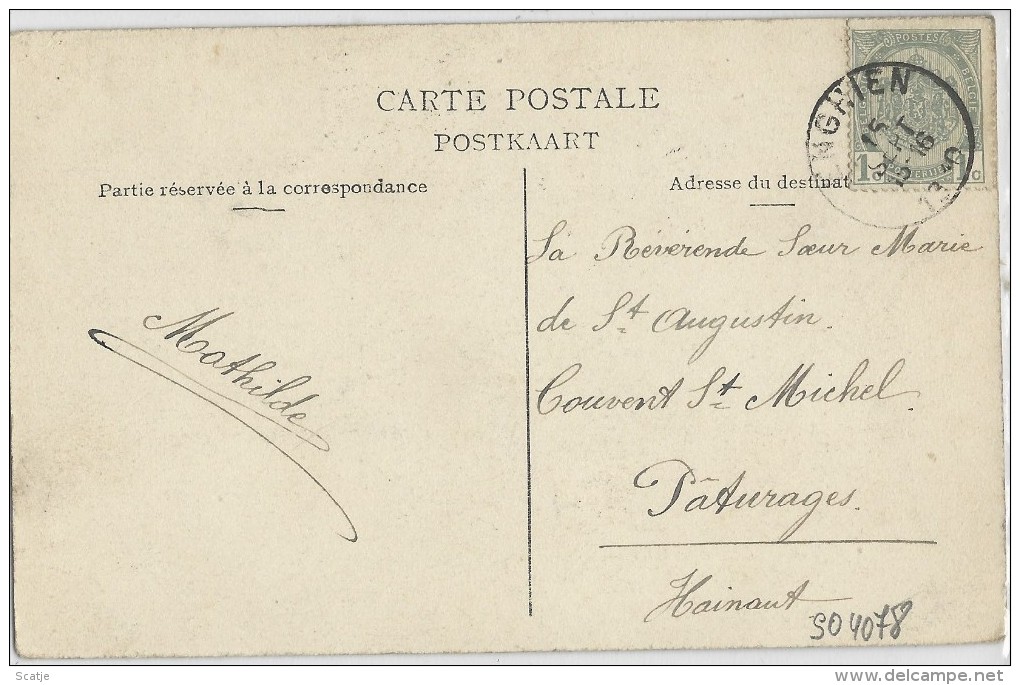 CARTE POSTALE
POSTKAART
Partie réservée à la correspondance
Adresse du destinat
POSTES
1c 1c
ENGHIEN
15
SEPT
15-16
La Révérende Sœur Marie
de St Augustin.
Couvent St Michel.
Pâturages.
Hainaut
Mathilde
SO4078
Scatje
delcampe.net